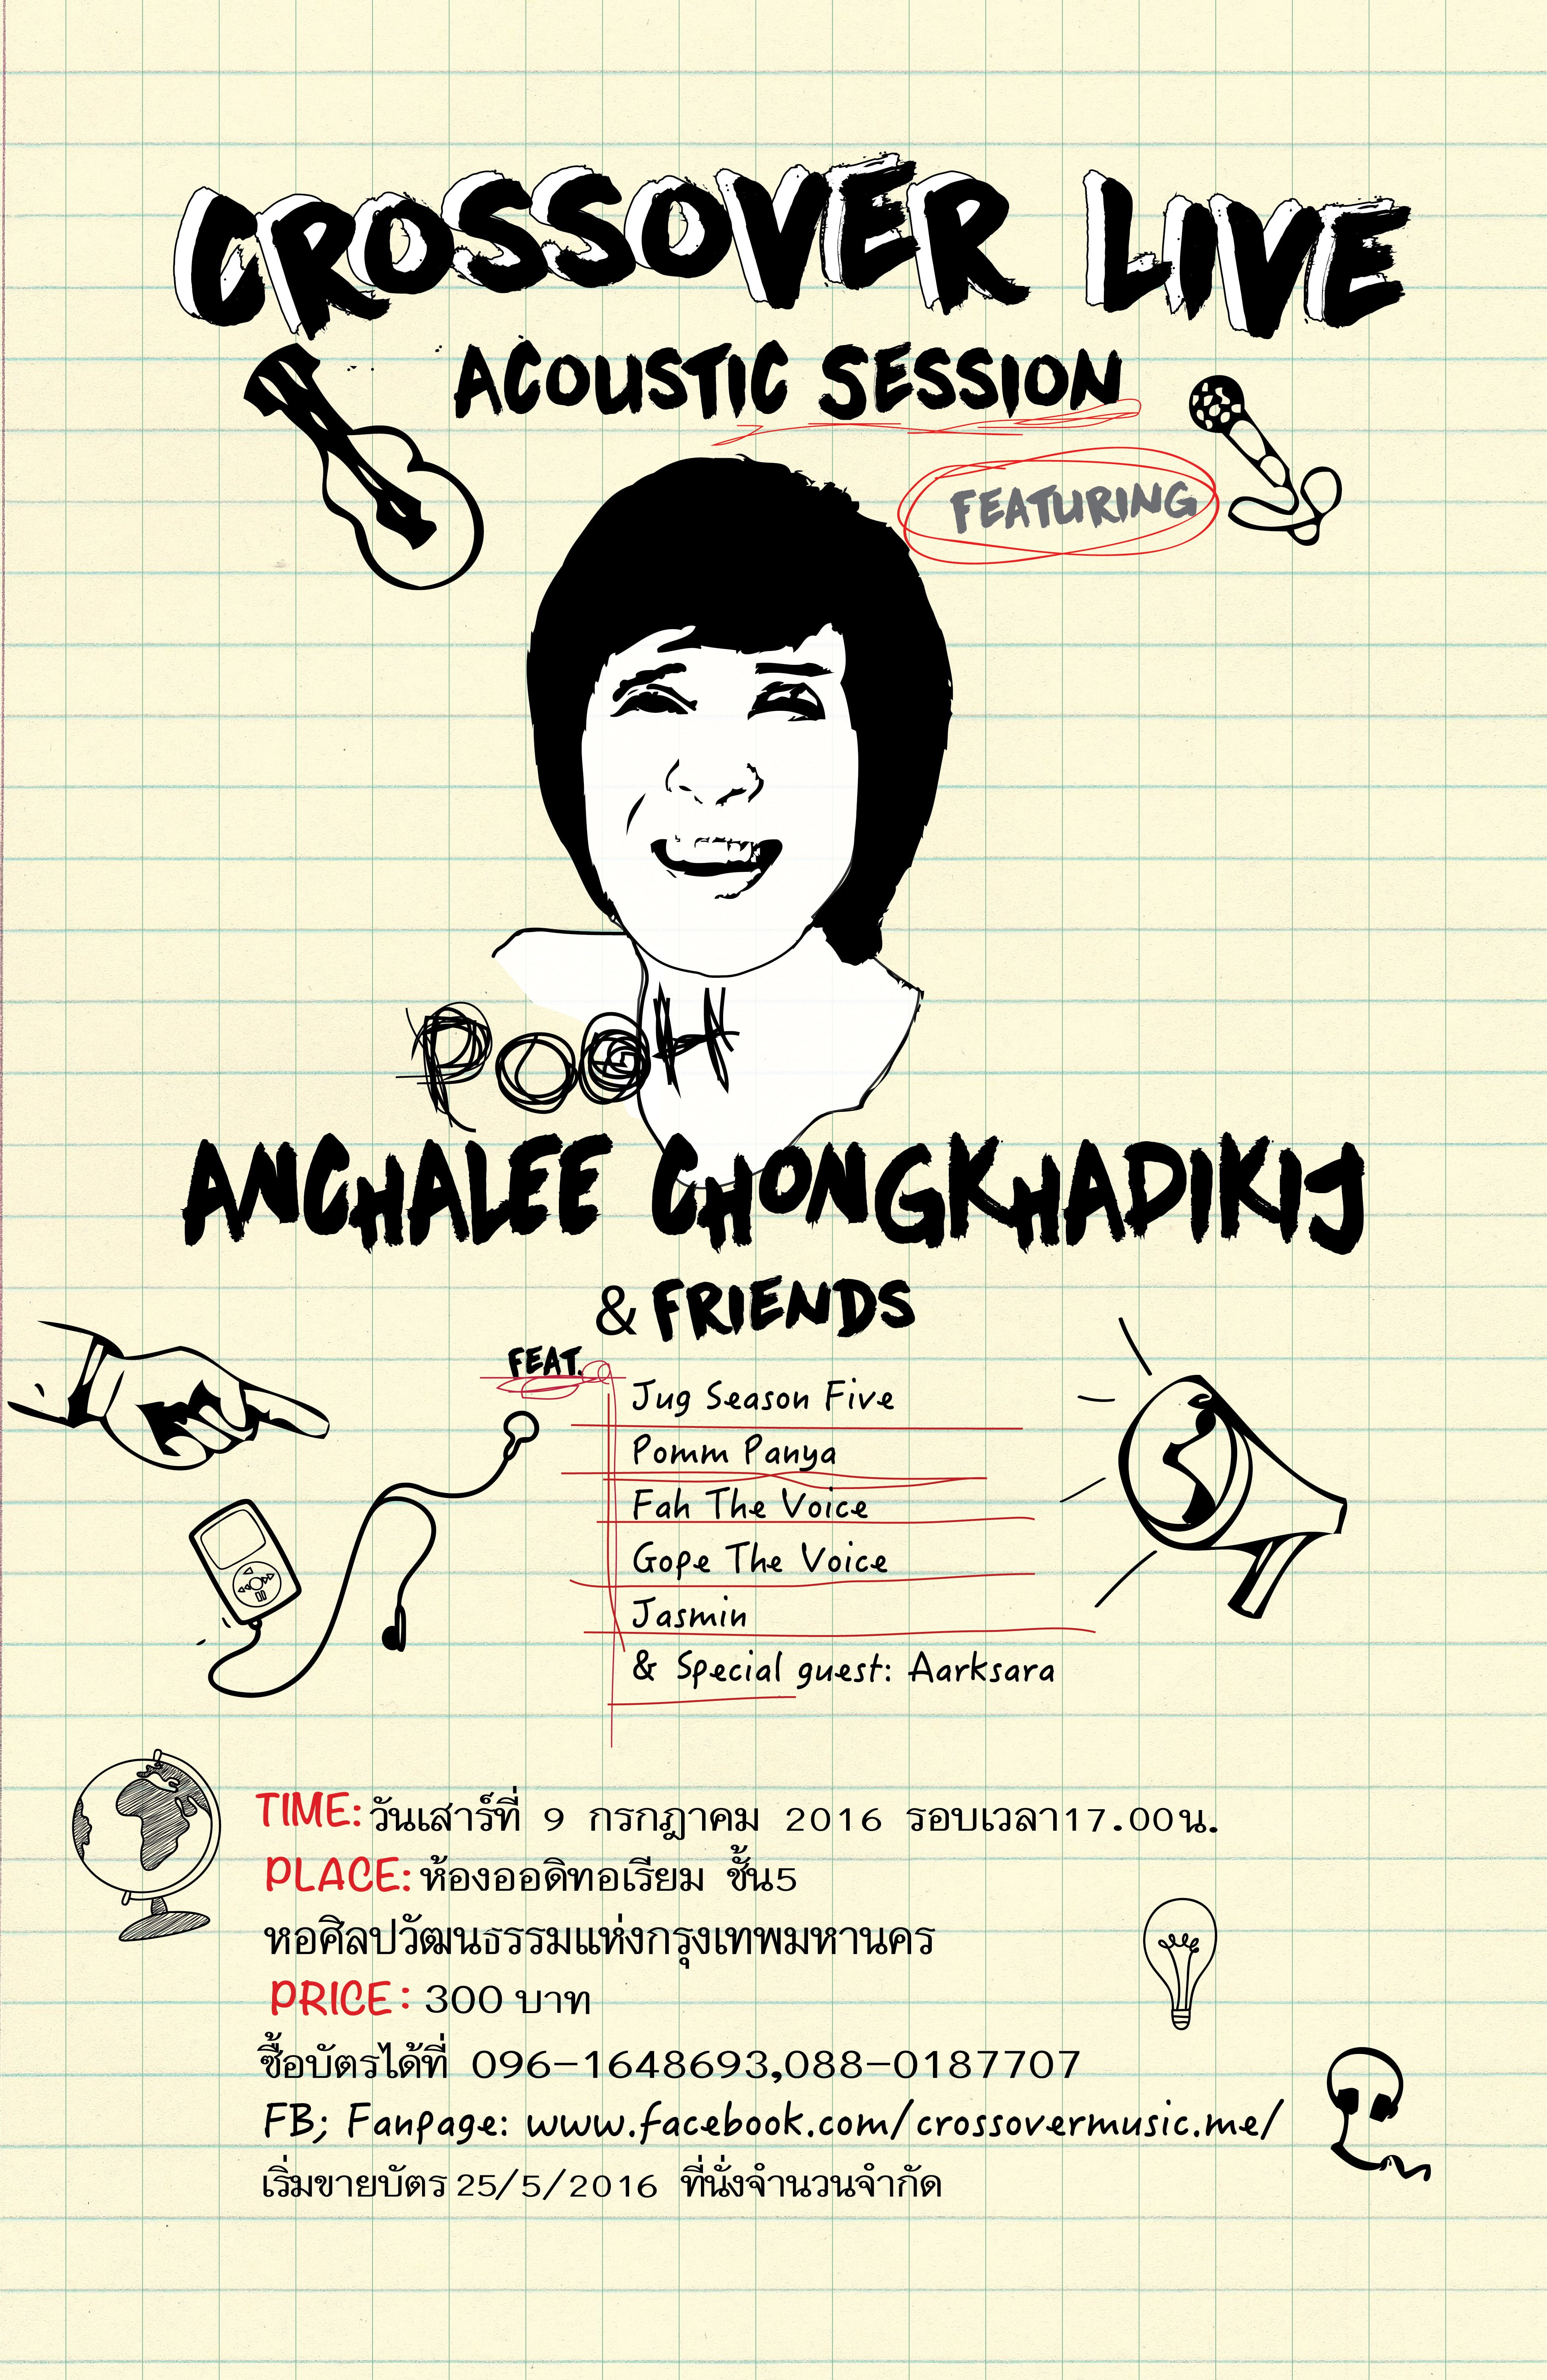 CROSSOVER LIVE
ACOUSTIC SESSION
FEATURING
POOH
ANCHALEE CHONGKHADIKIJ
& FRIENDS
FEAT.
Jug Season Five
Pomm Panya
Fah The Voice
Gope The Voice
Jasmin
& Special guest: Aarksara
TIME: วันเสาร์ที่ 9 กรกฎาคม 2016 รอบเวลา17.00น.
PLACE: ห้องออดิทอเรียม ชั้น5
หอศิลปวัฒนธรรมแห่งกรุงเทพมหานคร
PRICE: 300 บาท
ซื้อบัตรได้ที่ 096-1648693,088-0187707
FB; Fanpage: www.facebook.com/crossovermusic.me/
เริ่มขายบัตร 25/5/2016 ที่นั่งจำนวนจำกัด